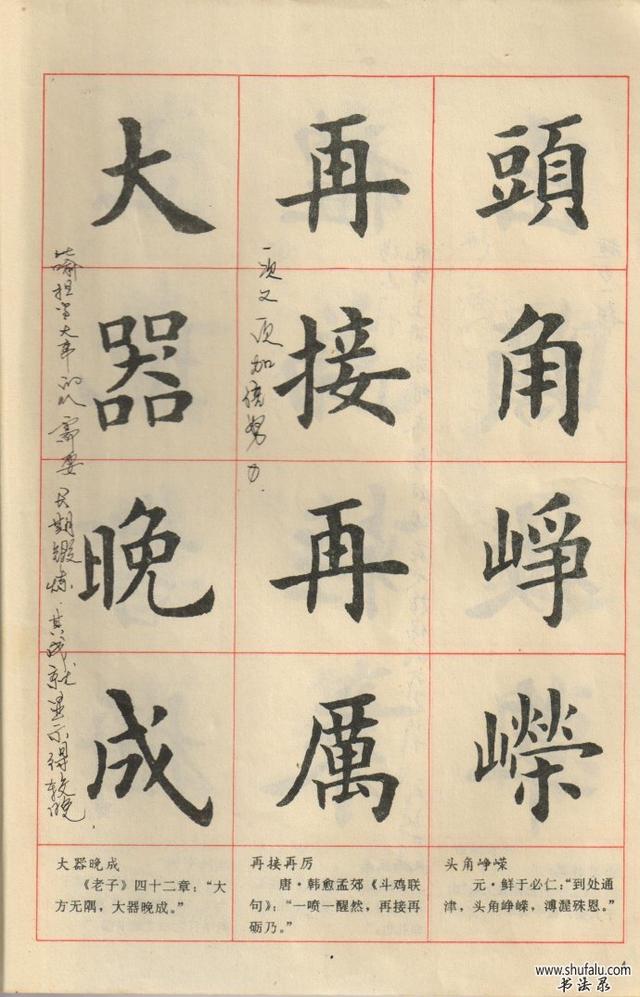 頭角崢嶸
再接再厲
一次又一次加倍努力.
大器晚成
比喻担当大事的人需要长期锻炼.其成就显示得较晚
大器晚成
《老子》四十二章:“大
方无隅,大器晚成。”
再接再厉
唐·韩愈孟郊《斗鸡联
句》:“一喷一醒然,再接再
砺乃。”
头角峥嵘
元·鲜于必仁:“到处通
津,头角峥嵘,溥渥殊恩。”
www.shufalu.com
书法录